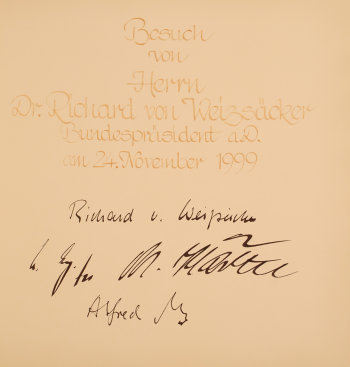 Besuch
von
Herrn
Dr. Richard von Weizsäcker
Bundespräsident a.D.
am 24. November 1999
Richard v. Weizsäcker
Alfred